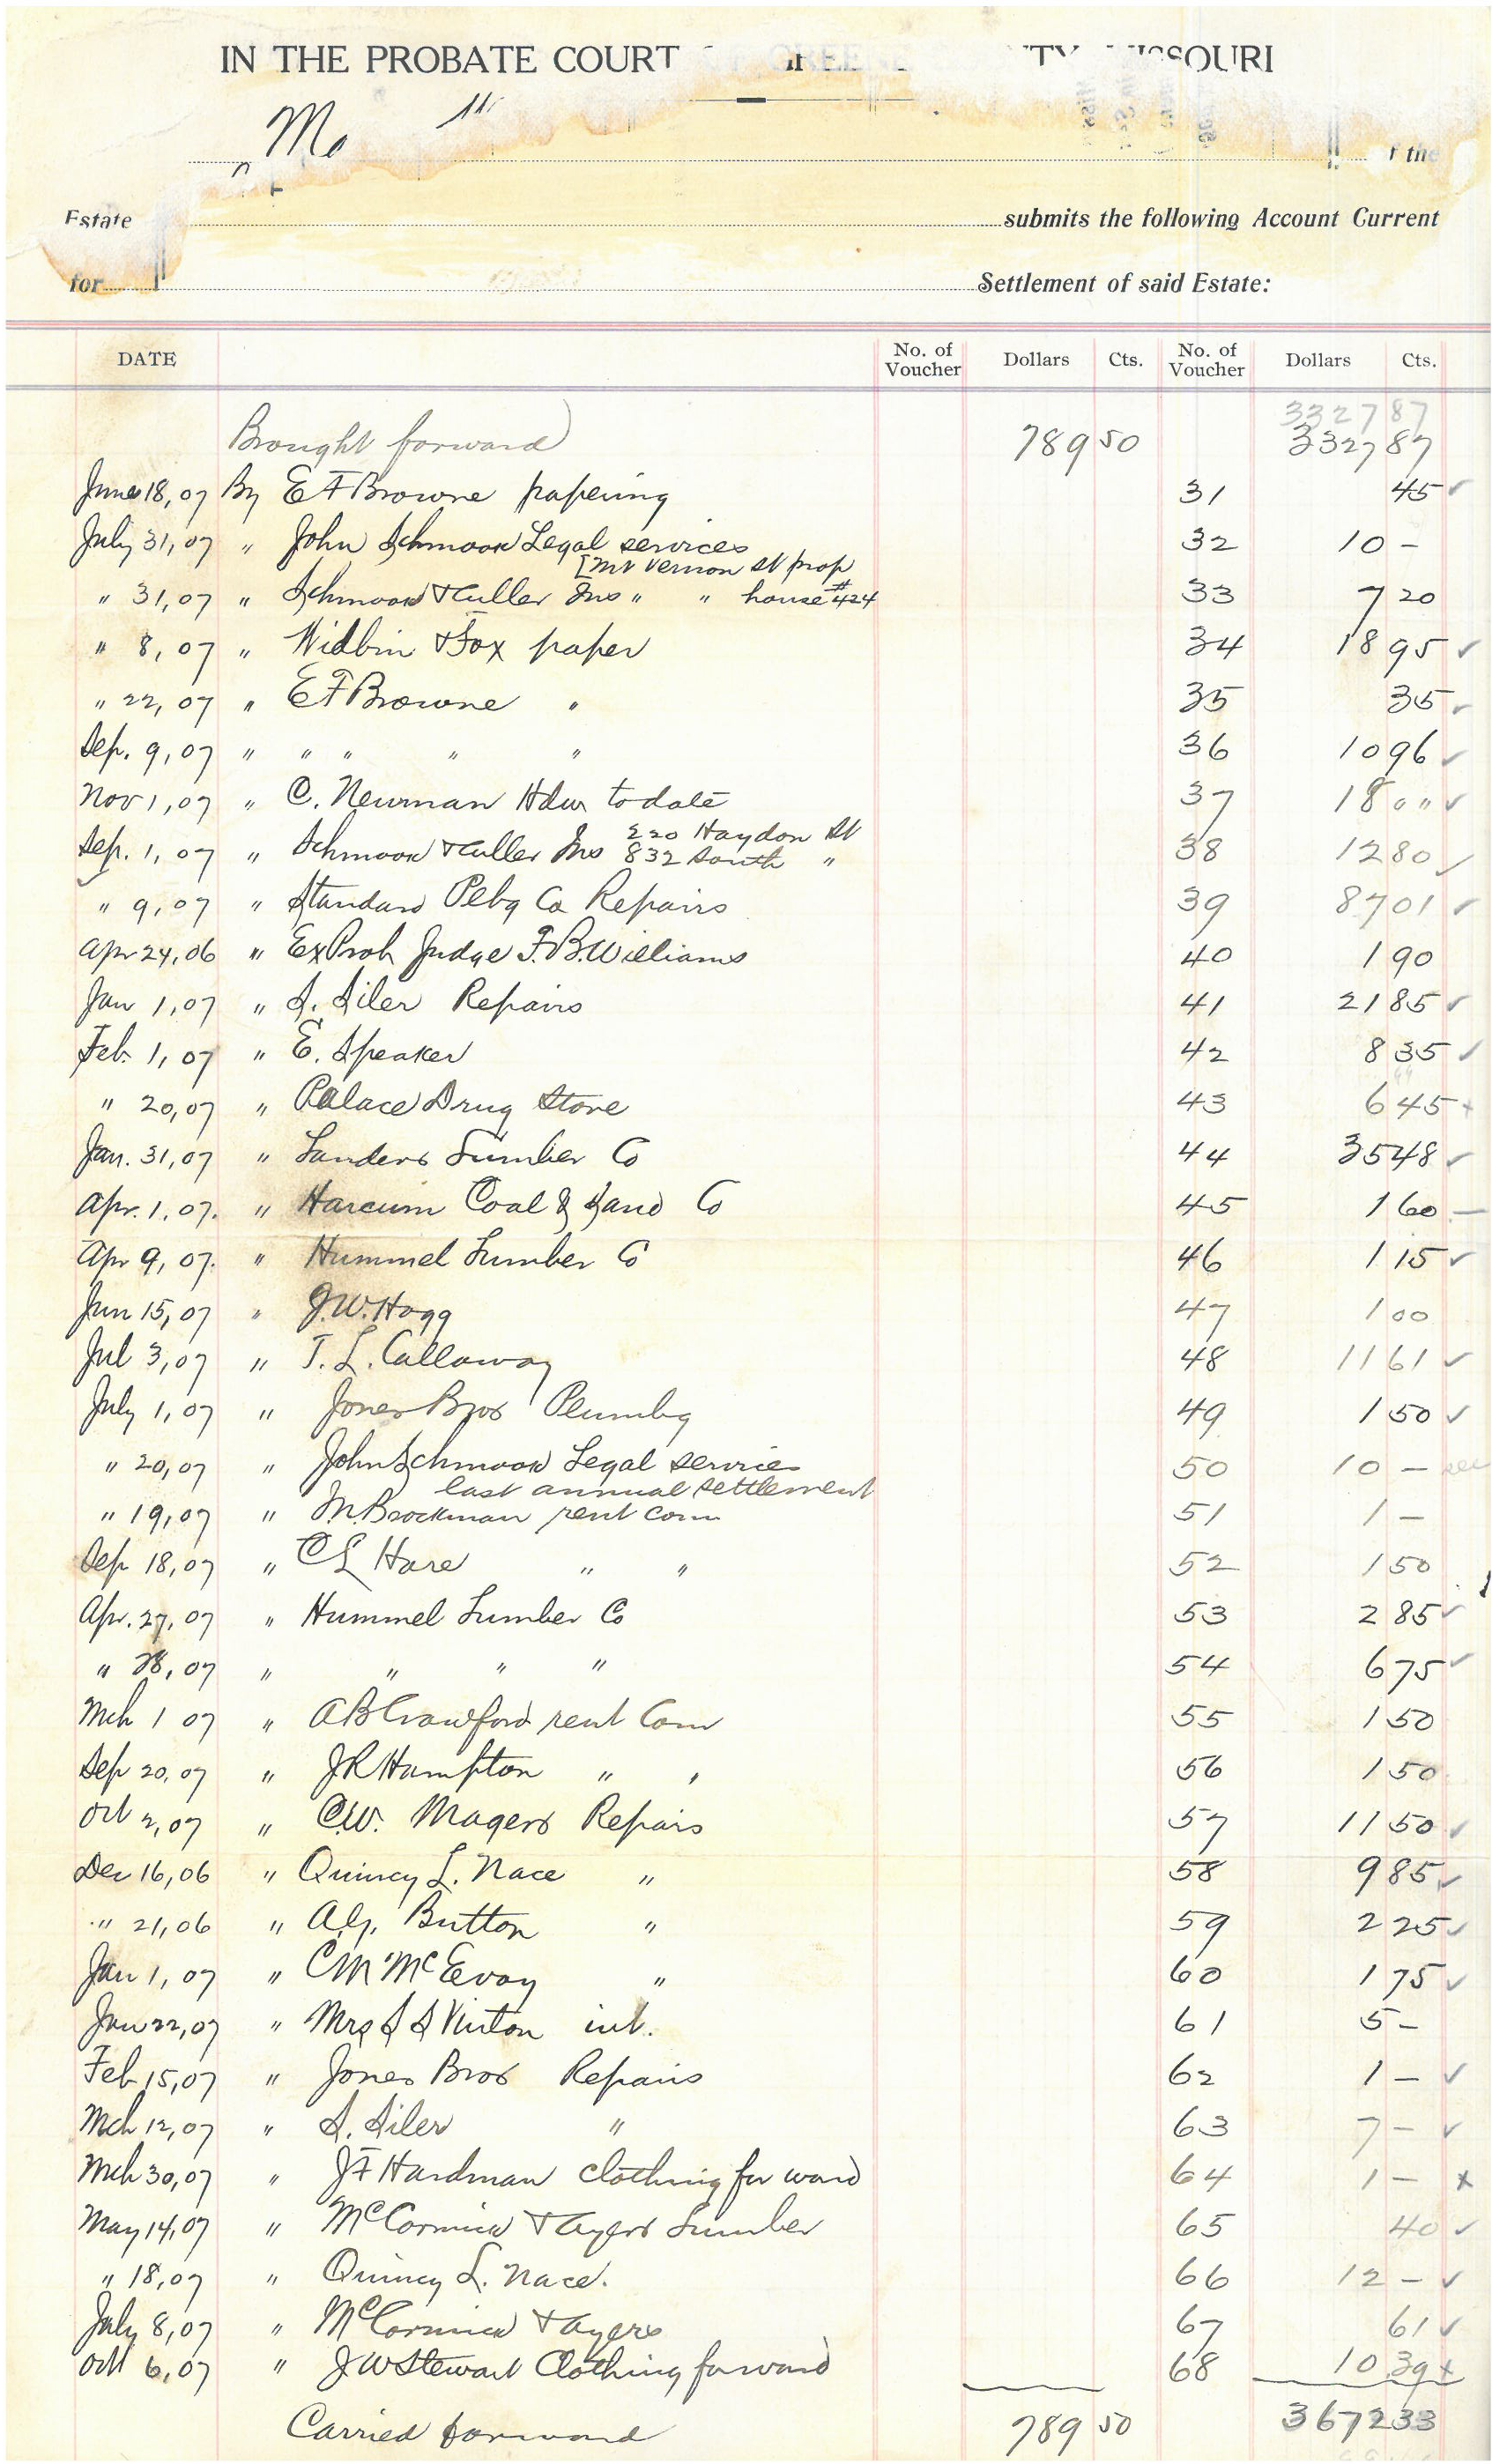 IN THE PROBATE COURT MISSOURI
Mc
f the
Estate submits the following Account Current
for Settlement of said Estate:
DATE No. of Voucher Dollars Cts. No. of Voucher Dollars Cts.
3327 87
Brought forward 789 50 3327 87
June 18, 07 By E F Browne papering 31 45 ✓
July 31, 07 " John Schmook Legal services 32 10 -
[Mt Vernon St prop
" 31, 07 " Schmook & Culler Ins " " house #424 33 7 20
" 8, 07 " Widbin & Fox paper 34 18 95 ✓
" 22, 07 " E F Browne " 35 35 ✓
Sep. 9, 07 " " " " " 36 10 96 ✓
Nov 1, 07 " C. Newman Hdw to date 37 18 00 ✓
220 Haydon St
Sep. 1, 07 " Schmook & Culler Ins 832 South " 38 12 80 ✓
" 9, 07 " Standard Plbg Co Repairs 39 87 01 ✓
Apr 24, 06 " Ex Prob Judge F. B. Williams 40 1 90
Jan 1, 07 " S. Siler Repairs 41 21 85 ✓
Feb. 1, 07 " E. Speaker 42 8 35 ✓
" 20, 07 " Palace Drug Store 43 6 45 x
Jan. 31, 07 " Landers Lumber Co 44 35 48 ✓
Apr. 1, 07. " Harcum Coal & Sand Co 45 1 60 —
Apr 9, 07. " Hummel Lumber Co 46 1 15 ✓
Jun 15, 07 " J. W. Hogg 47 1 00
Jul 3, 07 " T. L. Callaway 48 11 61 ✓
July 1, 07 " Jones Bros Plumbg 49 1 50 ✓
" 20, 07 " John Schmook Legal services 50 10 -
last annual settlement
" 19, 07 " M. Brockman rent com 51 1 -
Sep 18, 07 " C L Hare " " 52 1 50
Apr. 27, 07 " Hummel Lumber Co 53 2 85 ✓
" 28, 07 " " " " 54 6 75 ✓
Mch 1 07 " A B Crawford rent Com 55 1 50
Sep 20, 07 " J R Hampton " " 56 1 50
Oct 2, 07 " C. W. Magers Repairs 57 11 50 ✓
Dec 16, 06 " Quincy L. Nace " 58 9 85 ✓
" 21, 06 " A. G. Button " 59 2 25 ✓
Jan 1, 07 " C M McEvoy " 60 1 75 ✓
Jan 22, 07 " Mrs S S Vinton int. 61 5 -
Feb 15, 07 " Jones Bros Repairs 62 1 - ✓
Mch 12, 07 " S. Siler " 63 7 - ✓
Mch 30, 07 " J F Hardman clothing for ward 64 1 - x
May 14, 07 " McCormick & Ayers Lumber 65 40 ✓
" 18, 07 " Quincy L. Nace. 66 12 - ✓
July 8, 07 " McCormick & Ayers 67 61 ✓
Oct 6, 07 " J W Stewart Clothing for ward 68 10 39 x
Carried forward 789 50 3672 33